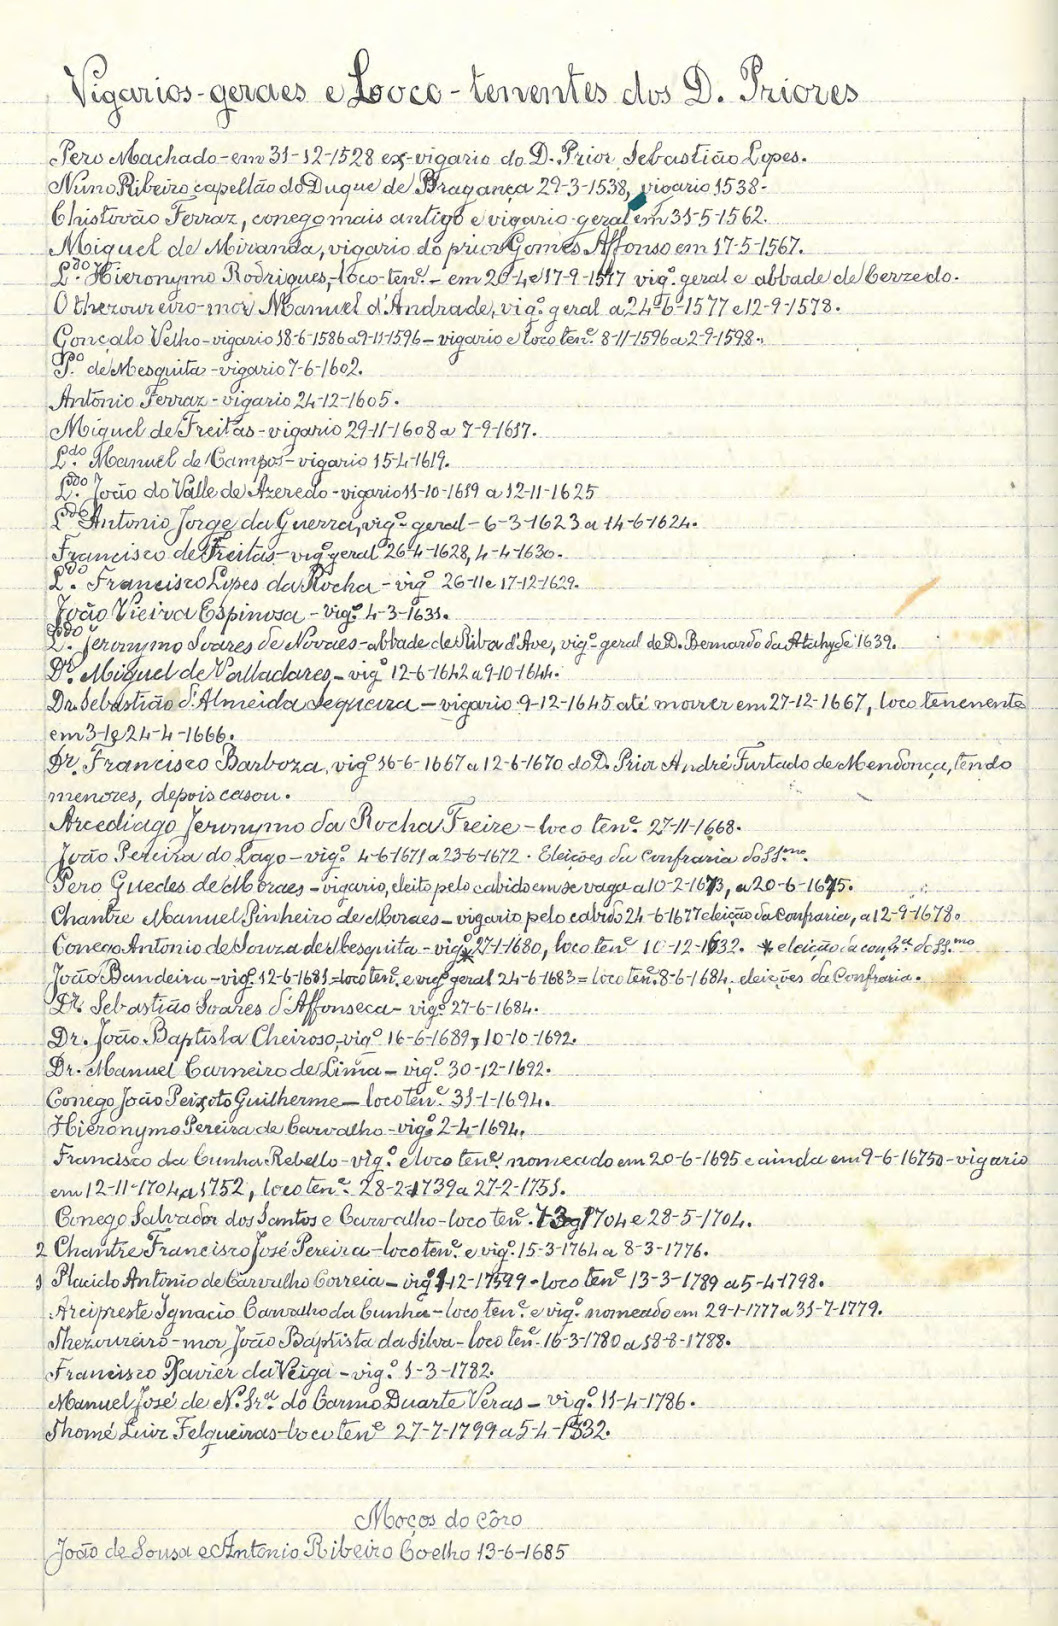 Vigarios-geraes e Looco-tenentes dos D. Priores
Pero Machado-em 31-12-1528 ex-vigario do D. Prior Sebastião Lopes.
Nuno Ribeiro capellão do Duque de Bragança 29-3-1538, vigario 1538-
Chistovão Ferraz, conego mais antigo e vigario geral em 31-5-1562.
Miguel de Miranda, vigario do prior Gomes Affonso em 17-5-1567.
L.do Hieronymo Rodrigues,-loco-ten.e- em 20-4 e 17-9-1577 vig.o geral e abbade de Cerzedo.
O thezoureiro-mor Manuel d'Andrade, vig.o geral a 24-6-1577 e 12-9-1578.
Gonçalo Velho-vigario 18-6-1586 a 9-11-1596-vigario e loco ten.e 8-11-1596 a 2-9-1598.
P.o de Mesquita-vigario 7-6-1602.
Antonio Ferraz-vigario 24-12-1605.
Miguel de Freitas-vigario 29-11-1608 a 7-9-1617.
L.do Manuel de Campos-vigario 15-4-1619.
L.do João do Valle de Azeredo-vigario 11-10-1619 a 12-11-1625
L.do Antonio Jorge da Guerra, vig.o geral-6-3-1623 a 14-6-1624.
Francisco de Freitas-vig.o geral 26-4-1628, 4-4-1630.
L.do Francisco Lopes da Rocha-vig.o 26-11 e 17-12-1629.
João Vieira Espinosa-vig.o 4-3-1631.
L.do Jeronymo Soares de Novaes-abbade de Riba d'Ave, vig.o geral de D. Bernardo da Atahyde 1639.
Dr. Miguel de Valladares-vig.o 12-6-1642 a 9-10-1644.
Dr. Sebastião d'Almeida Sequeira-vigario 9-12-1645 até morrer em 27-12-1667, loco tenenente
em 24-4-1666.
Dr. Francisco Barboza, vig.o 16-6-1667 a 12-6-1670 do D. Prior André Furtado de Mendonça, tendo
menores, depois casou.
Arcediago Jeronymo da Rocha Freire-loco ten.e 27-11-1668.
João Pereira do Lago-vig.o 4-6-1671 a 23-6-1672. Eleições da Confraria do SS.mo
Pero Guedes de Moraes-vigario, eleito pelo cabido em se vaga a 10-2-1673, a 20-6-1675.
Chantre Manuel Pinheiro de Moraes-vigario pelo cabido 24-6-1677 eleição da Confraria, a 12-9-1678.
Conego Antonio de Souza de Mesquita-vig.o* 27-1-1680, loco ten.e 10-12-1632. * eleição da conf.a do SS.mo
João Bandeira-vig.o 12-6-1681=loco ten.e e vig.o geral 24-6-1683=loco ten.e 8-6-1684, eleições da Confraria.
Dr. Sebastião Soares d'Affonseca-vig.o 27-6-1684.
Dr. João Baptista Cheiroso, vig.o 16-6-1689, 10-10-1692.
Dr. Manuel Carneiro de Lima-vig.o 30-12-1692.
Conego João Peixoto Guilherme-loco ten.e 31-1-1694.
Hieronymo Pereira de Carvalho-vig.o 2-4-1694.
Francisco da Cunha Rebello-vig.o e loco ten.e nomeado em 20-6-1695 e ainda em 9-6-1675o-vigario
em 12-11-1704 a 1752, loco ten.e 28-2-1739 a 27-2-1751.
Conego Salvador dos Santos e Carvalho-loco ten.e 1704 e 28-5-1704.
2 Chantre Francisco José Pereira-loco ten.e e vig.o 15-3-1764 a 8-3-1776.
1 Placido Antonio de Carvalho Correia-vig.o loco ten.e 13-3-1789 a 5-4-1798.
Arcipreste Ignacio Carvalho da Cunha-loco ten.e e vig.o nomeado em 29-1-1777 a 31-7-1779.
Thezoureiro-mor João Baptista da Silva-loco ten.e 16-3-1780 a 18-8-1788.
Francisco Xavier da Veiga-vig.o 1-3-1782.
Manuel José de N. Sr.a do Carmo Duarte Veras-vig.o 11-4-1786.
Thomé Luiz Felgueiras-loco ten.e 27-7-1799 a 5-4-1832.
Moços do côro
João de Sousa e Antonio Ribeiro Coelho 13-6-1685